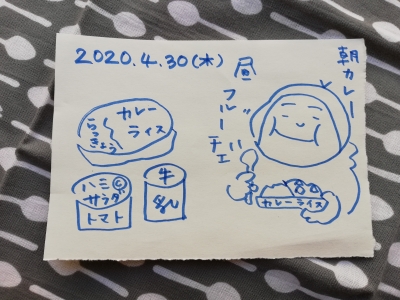 2020.4.30(木)
朝カレー
昼
フルーチェ
カレー
ライス
らっきょう
ハミ
サラダ
トマト
牛
乳
カレーライス